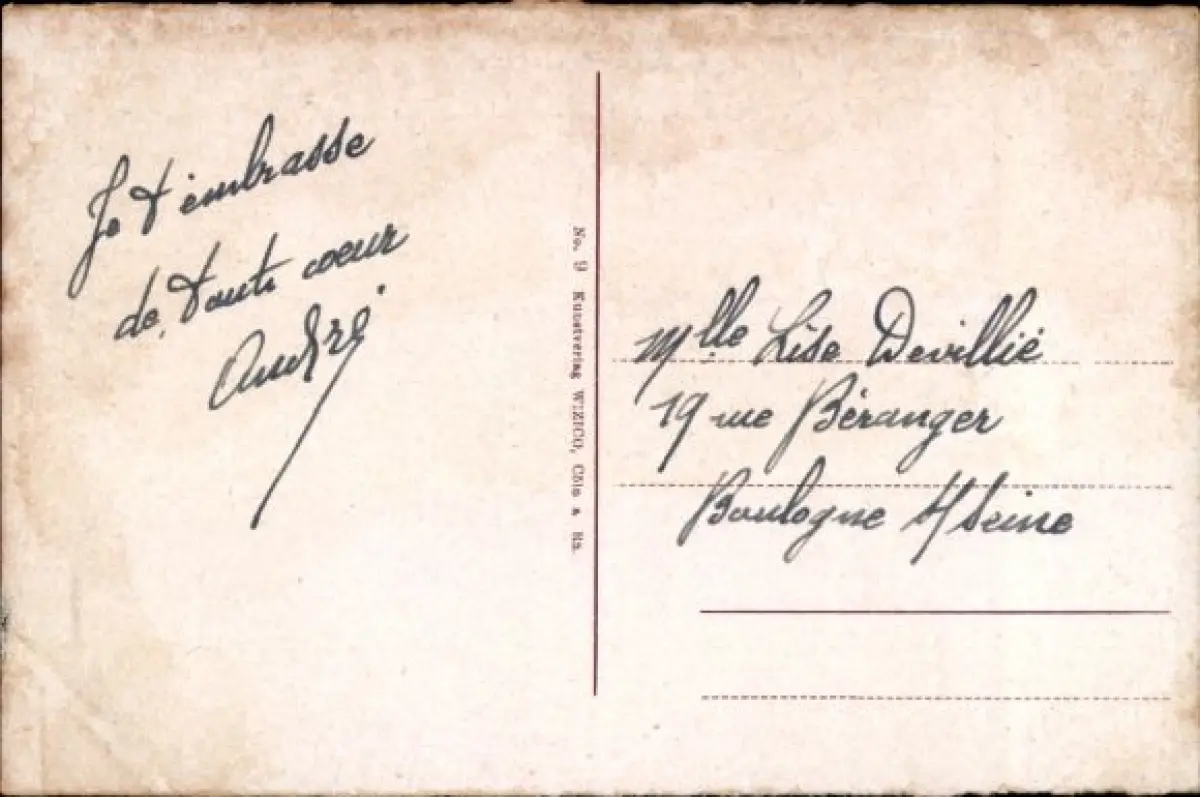 Je t'embrasse
de tout coeur
André
No. 9 Kunstverlag WIZICO, Cöln a Rh.
Mlle Lise Devillié
19 rue Béranger
Boulogne s/seine